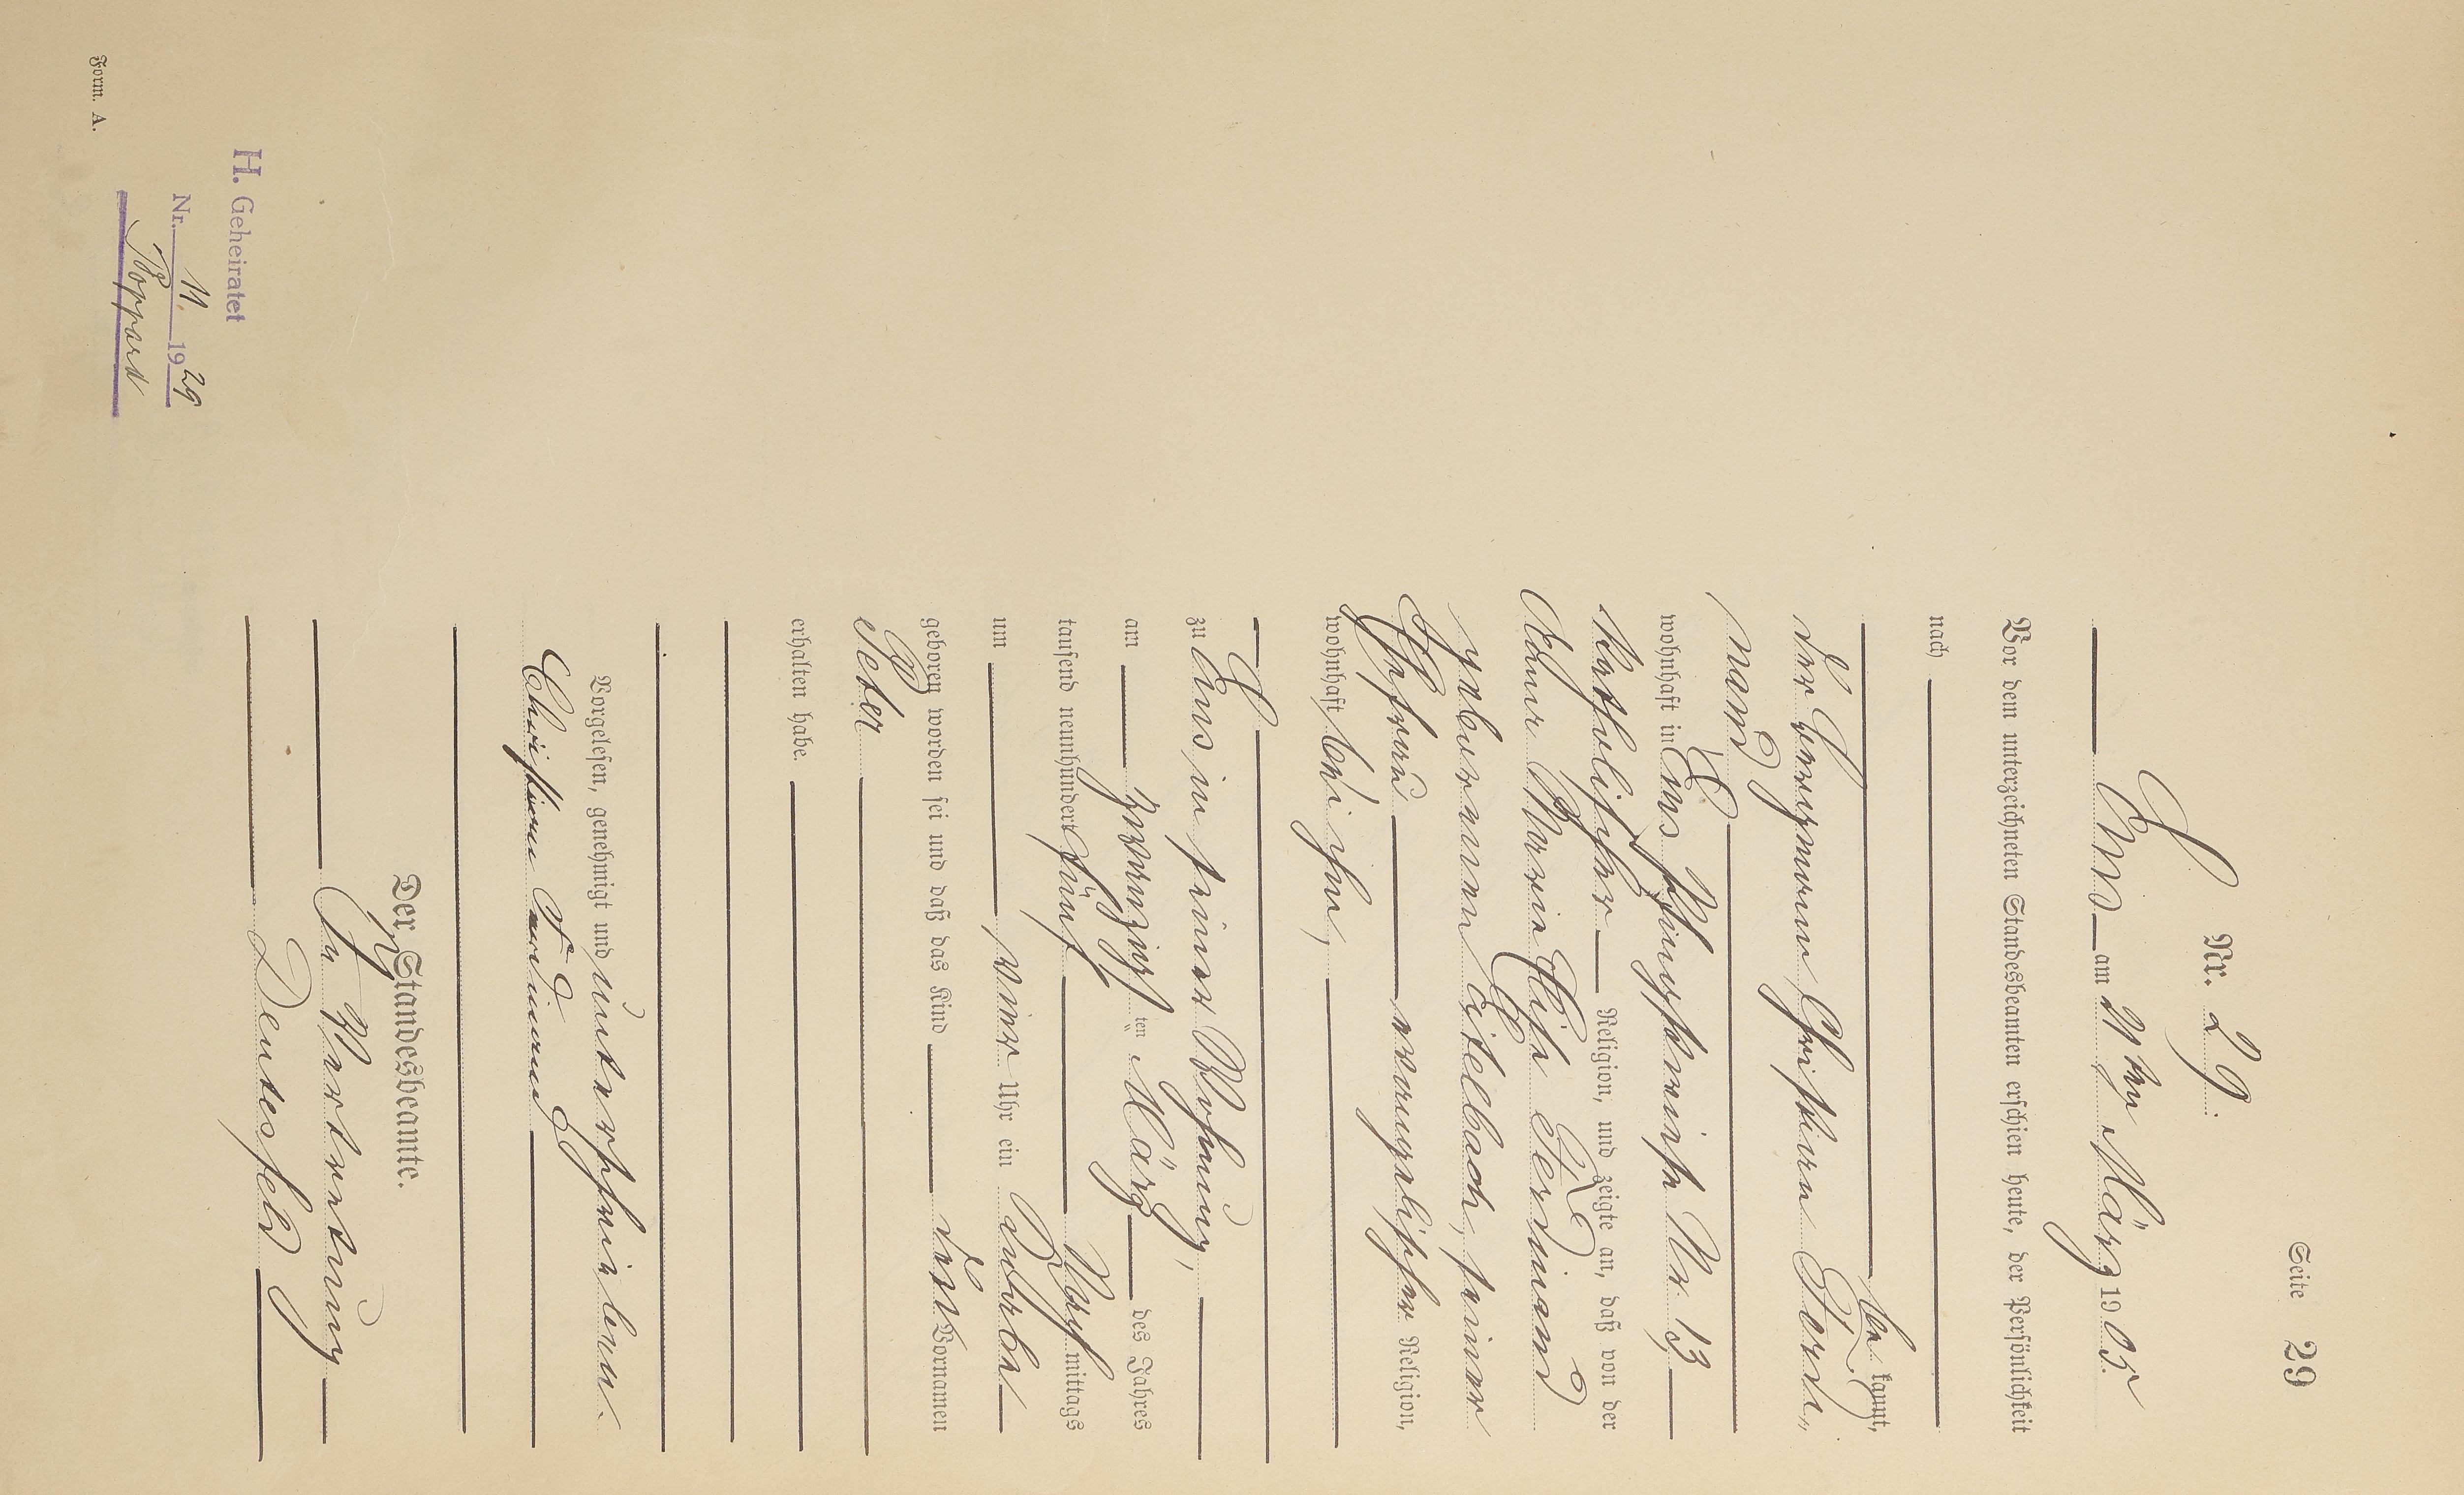 Seite 29
Nr. 29.
Ems am 21ten März 1905.
Vor dem unterzeichneten Standesbeamten erschien heute, der Persönlichkeit
nach
bekannt,
der Bergmann Christian Ferdi„
nand
wohnhaft in Ems Pfingstwiese Nr. 13
katholischer Religion, und zeigte an, daß von der
Anna Maria Elise Ferdinand
geborenen Eitelbach, seiner
Ehefrau evangelischer Religion,
wohnhaft bei ihm,
zu Ems in seiner Wohnung,
am zwanzigsten März des Jahres
tausend neunhundert fünf Vormittags
um vier Uhr ein Knabe
geboren worden sei und daß das Kind den Vornamen
Peter
erhalten habe.
Vorgelesen, genehmigt und unterschrieben.
Christian Ferdinand
Der Standesbeamte.
In Vertretung
Deutesfeld
H. Geheiratet
Nr. 11 1929
Boppard
Form. A.